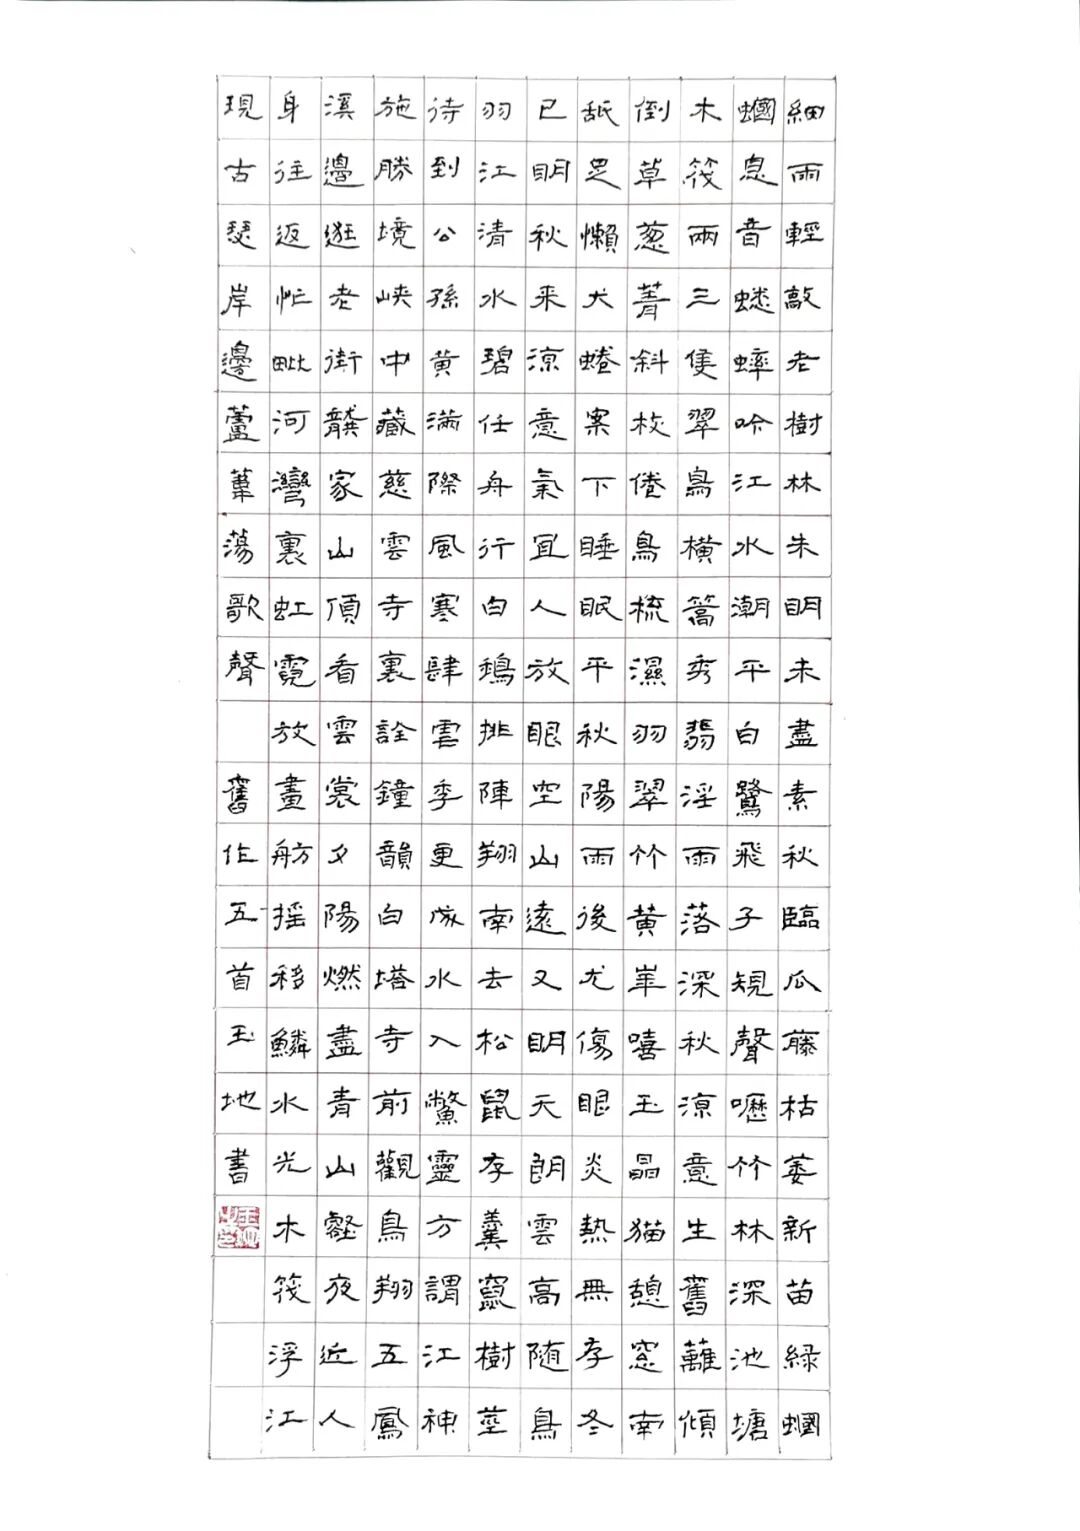 細雨輕敲老樹林朱明未盡素秋臨瓜藤枯萎新苗緑蟈
蟈息音蟋蟀吟江水潮平白鷺飛子規聲嚦竹林深池塘
木筏兩三隻翠鳥橫篙秀翡淫雨落深秋涼意生舊蘺傾
倒草蔥菁斜枝倦鳥梳濕羽翠竹黃崋嘻玉晶猫憩窓南
舐足懶犬蜷案下睡眠平秋陽雨後尤傷眼炎熱無存冬
已明秋來涼意氣宜人放眼空山遠又明天朗雲高随鳥
羽江清水碧任舟行白鵝排陣翔南去松鼠存羹竄樹莖
待到公孫黃滿際風寒肆雪季更成水入鱉靈方謂江神
施勝境峽中藏慈雲寺裏詮鐘韻白塔寺前觀鳥翔五鳳
溪邊逛老街龔家山頂看雲裳夕陽燃盡青山壑夜近人
身往返忙毗河灣裏虹霓放畫舫搖移鱗水光木筏浮江
現古琴岸邊蘆葦蕩歌聲 舊作五首玉地書